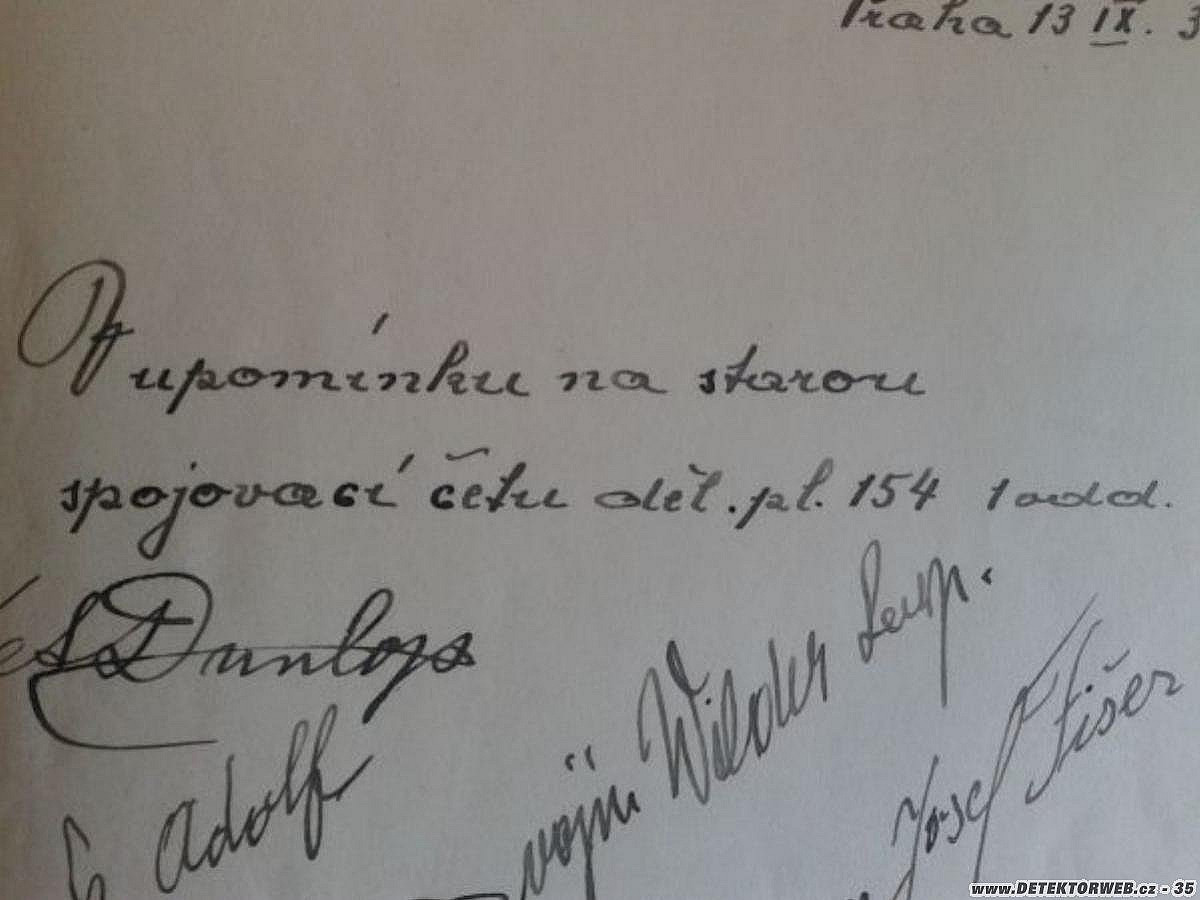 Praha 13 IX. 3
V upomínku na starou
spojovací četu děl. pl. 154 1 odd.
Dunlop
Adolf
vojín Wilder
Josef Fišer
www.DETEKTORWEB.cz - 35